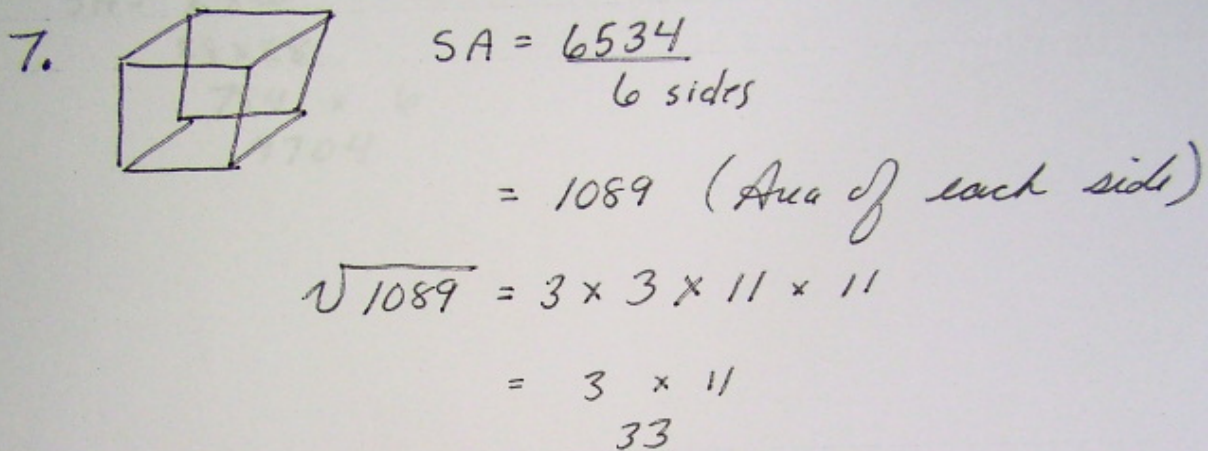 7. SA = 6534
6 sides
= 1089 (Area of each side)
√1089 = 3 x 3 x 11 x 11
= 3 x 11
33